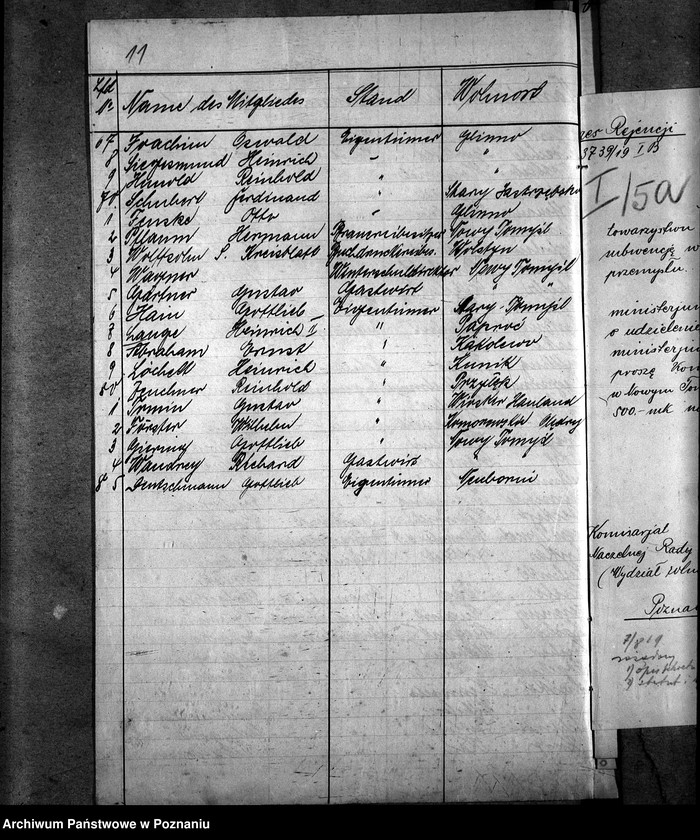 11
Lfd № Name des Mitgliedes Stand Wohnort
67 Joachim Oswald Eigentümer Glinno
8 Siegesmund Heinrich " "
9 Hanold Reinhold " "
70 Schubert Ferdinand " Stary Jastrzębsko
1 Jenske Otto " Glinno
2 Pflaum Hermann Brauereibesitzer Nowy Tomyśl
3 Wolfsohn f. Kreisblatt Wolstyn
4 Wagner Winterschuldirektor Nowy Tomyśl
5 Gärtner Gustav Gastwirt
6 Hain Gottlieb Eigentümer Stary-Tomyśl
7 Lange Heinrich II " Paproć
8 Abraham Ernst " Kąkolewo
9 Heinrich " Kunik
80 Zeuchner Reinhold " Przyłęk
1 Irmin Gustav "
2 Förster Wilhelm "
3 Giering Gottlieb " Nowy Tomyśl
4 Wandrey Richard Gastwirt "
85 Deutschmann Gottlieb Eigentümer Neuborui
Rejencji
3739/19 I B
I/5a
towarzystwu
subwencję w
przemysłu.
ministerjum
o udzielenie
ministerjum
proszę Kom
w Nowym Tom
500.-mk
Komisarjat
Naczelnej Rady
(Wydział
Pozna
7/8 19
Archiwum Państwowe w Poznaniu